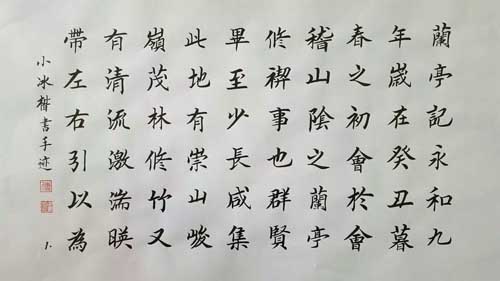 蘭亭記永和九
年歲在癸丑暮
春之初會於會
稽山陰之蘭亭
修禊事也群賢
畢至少長咸集
此地有崇山峻
嶺茂林修竹又
有清流激湍暎
帶左右引以為
小冰楷書手迹
1.